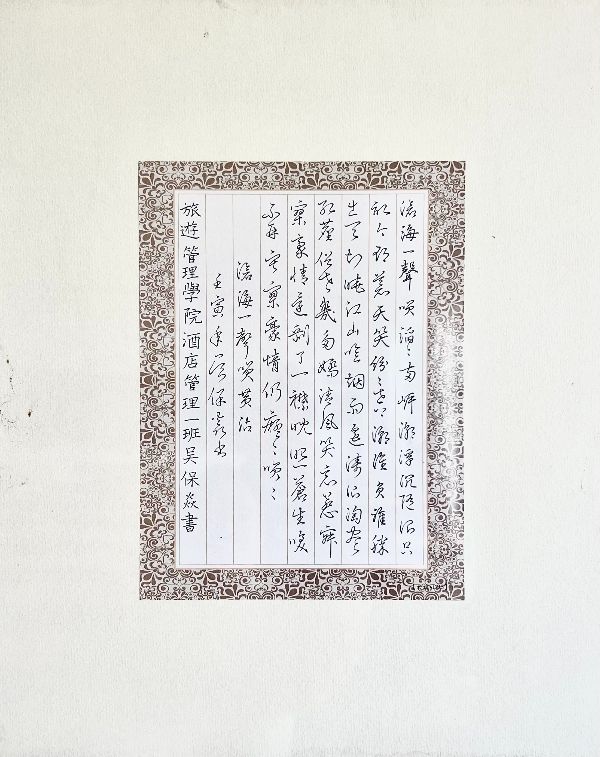 滄海一聲嘆滔〻兩岸潮浮沉隨浪只
記今朝蒼天笑紛〻世上潮誰負誰勝
出天知曉江山笑烟雨遙濤浪淘盡
紅塵俗世幾多嬌清風笑竟惹寂
寥豪情還剩了一襟晚照蒼生笑
不再寂寥豪情仍癡〻笑〻
滄海一聲笑黄霑
壬寅年吴保焱书
旅遊管理學院酒店管理一班吴保焱書